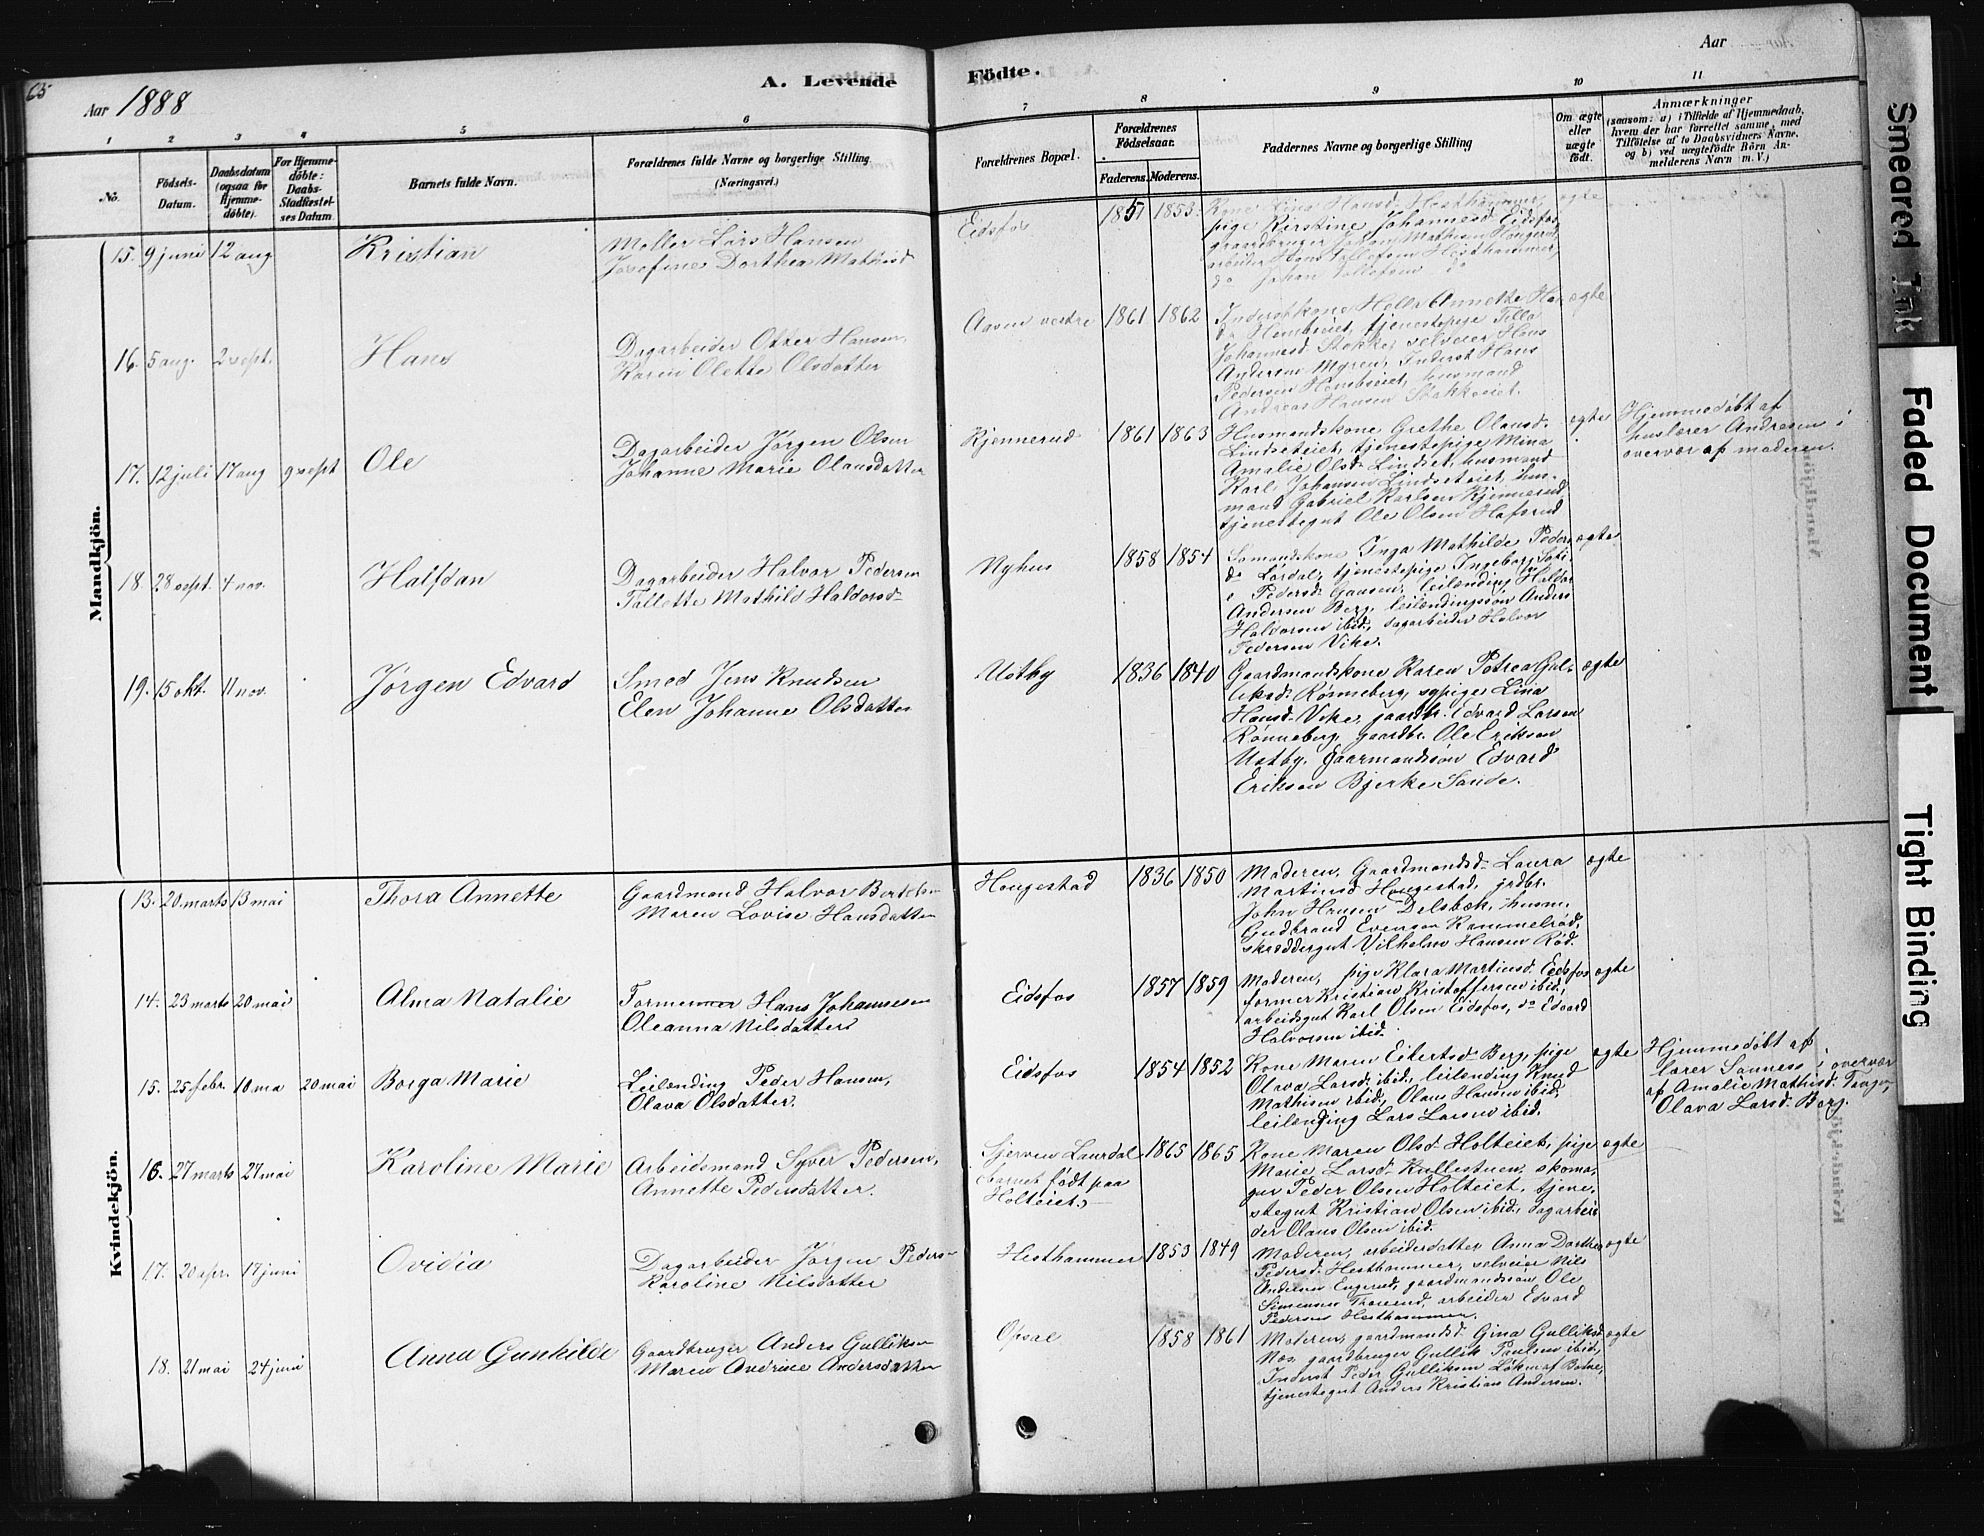 65
Aar 1888
A. Levende
Födte.
Aar
1 2 3 4 5 6 7 8 9 10 11
No.
Födsels-Datum.
Daabsdatum (ogsaa for Hjemme-döbte).
For Hjemme-döbte: Daabs-Stadfæstel-ses Datum
Barnets fulde Navn.
Forældrenes fulde Navne og borgerlige Stilling (Næringsvei.)
Forældrenes Bopæl.
Forældrenes Födselsaar.
Faderens. Moderens.
Faddernes Navne og borgerlige Stilling
Om ægte eller uægte födt.
Anmærkninger
(saasom: a) i Tilfælde af Hjemmedaab, hvem der har forrettet samme, med Tilföielse af to Daabsvidners Navne, og b) ved uægtefödte Börn An-melderens Navn m. V.)
Mandkjön.
15. 9 juni 12 aug
Kristian
Møller Lars Hansen
Josefine Dorthea Mathisd
Eidsfos
1851 1853
pige Kirstine Johannesd Eidsfos,
do Johan Tollefsen do
ægte
16. 5 aug. 2 sept.
Hans
Dagarbeider Otter Hansen,
Karen Olette Olsdatter
Aasen vestre
1861 1862
Inderstkone Helle Annette Han
do Honebseiet, tjenestepige Tilla
Johannesd Stokke, selveier Hans
Andersen Myren, Inderst Hans
Pedersen Honebseiet, husmand
Andreas Hansen Stokkeeiet.
ægte
17. 12 juli 17 aug 9 sept
Ole
Dagarbeider Jørgen Olsen
Johanne Marie Olausdatter
Kjennerud
1861 1863
Husmandskone Grethe Olausd.
Lindseteiet, tjenestepige Mina
Amalie Olsd. Lindset, husmand
Karl Johansen Lindseteiet, hus-
mand Gabriel Karlsen Kjennerud,
tjenestegut Ole Olsen Hafsrud
ægte
Hjemmedøbt af
huslærer Andresen i
overvær af moderen.
18. 28 sept. 4 nov.
Halfdan
Dagarbeider Halvor Pedersen
Tallette Mathild Haldorsd
Nyhus
1858 1854
Somandskone Inga Mathilde Peders
do Lørdal, tjenestepige Ingeborg
Pedersd Gausen, leilænding Haldor
Andersen Berg, leilændingssøn Anders
Halvorsen ibid, dagarbeider Halvor
Pedersen Vike.
ægte
19. 15 okt. 11 nov.
Jørgen Edvard
Smed Jens Knudsen
Elen Johanne Olsdatter
Ustby
1836 1840
Gaardmandskone Karen Petrea Gul-
liksd. Rønneberg, sypige Lina
Hansd. Vike, gaardbr. Edvard Larsen
Rønneberg, gaardbr. Ole Eriksen
Ustby, gaarmandssøn Edvard
Eriksen Bjerke Sande.
ægte
Kvindekjön.
13. 20 marts 13 mai
Thora Annette
Gaardmand Halvor Bertels
Maren Lovise Hansdatter
Hougestad
1836 1850
Moderen, Gaardmandsd. Laura
Martinsd Hougestad, grdbr.
John Hansen Delsbæk, husm.
Gudbrand Evensen Rammelrød,
skræddergut Vilhelm Hansen Rød.
ægte
14. 23 marts 20 mai
Alma Natalie
Former Hans Johannesen
Oleanna Nilsdatter
Eidsfos
1857 1859
Moderen, pige Klara Martinsd. Eidsfos
former Kristian Kristoffersen ibid,
arbeidsgut Karl Olsen Eidsfos, do Edvard
Halvorsen ibid.
ægte
15. 25 febr. 10 ma 20 mai
Borga Marie
Leilænding Peder Hansen,
Olava Olsdatter.
Eidsfos
1854 1852
Kone Maren Eilertsd. Berg, pige
Olava Larsd. ibid, leilænding Knud
Mathisen ibid, Olaus Hansen ibid,
leilending Lars Larsen ibid.
ægte
Hjemmedøbt af
lærer Sanness i overvær
af Amalie Mathisd.
Olava Larsd. Berg.
16. 27 marts 27 mai
Karoline Marie
Arbeidsmand Syver Pedersen,
Annette Pedersdatter.
Sjerven Laurdal
(barnet født paa
Holteiet)
1865 1865
Kone Maren Olsd. Holteiet, pige
Marie Larsd. Kullestuen, skoma-
ger Peder Olsen Holteiet, tjene-
stegut Kristian Olsen ibid, dagarbei
der Olaus Olsen ibid.
ægte
17. 20 apr. 17 juni
Ovidia
Dagarbeider Jørgen Peders
Karoline Nilsdatter
Hesthammer
1853 1849
Moderen, arbeiderdatter Anna Dorthea
Pedersd. Hesthammer, selveier Nils
Andersen Engerud, gaardmandssøn Ole
Simensen, arbeider Edvard
Pedersen Hesthammer.
ægte
18. 21 mai 24 juni
Anna Gunhilde
Gaardbruger Anders Gulliksen
Maren Andrine Andersdatter
Opsal
1858 1861
Moderen, gaardmandsd. Gina Gulliksd
Næs, gaardbruger Gullik Paulsen ibid,
Inderst Peder Gulliksen Løken af Botne,
tjenestegut Anders Kristian Andersen.
ægte
Smeared Ink
Faded Document
Tight Binding